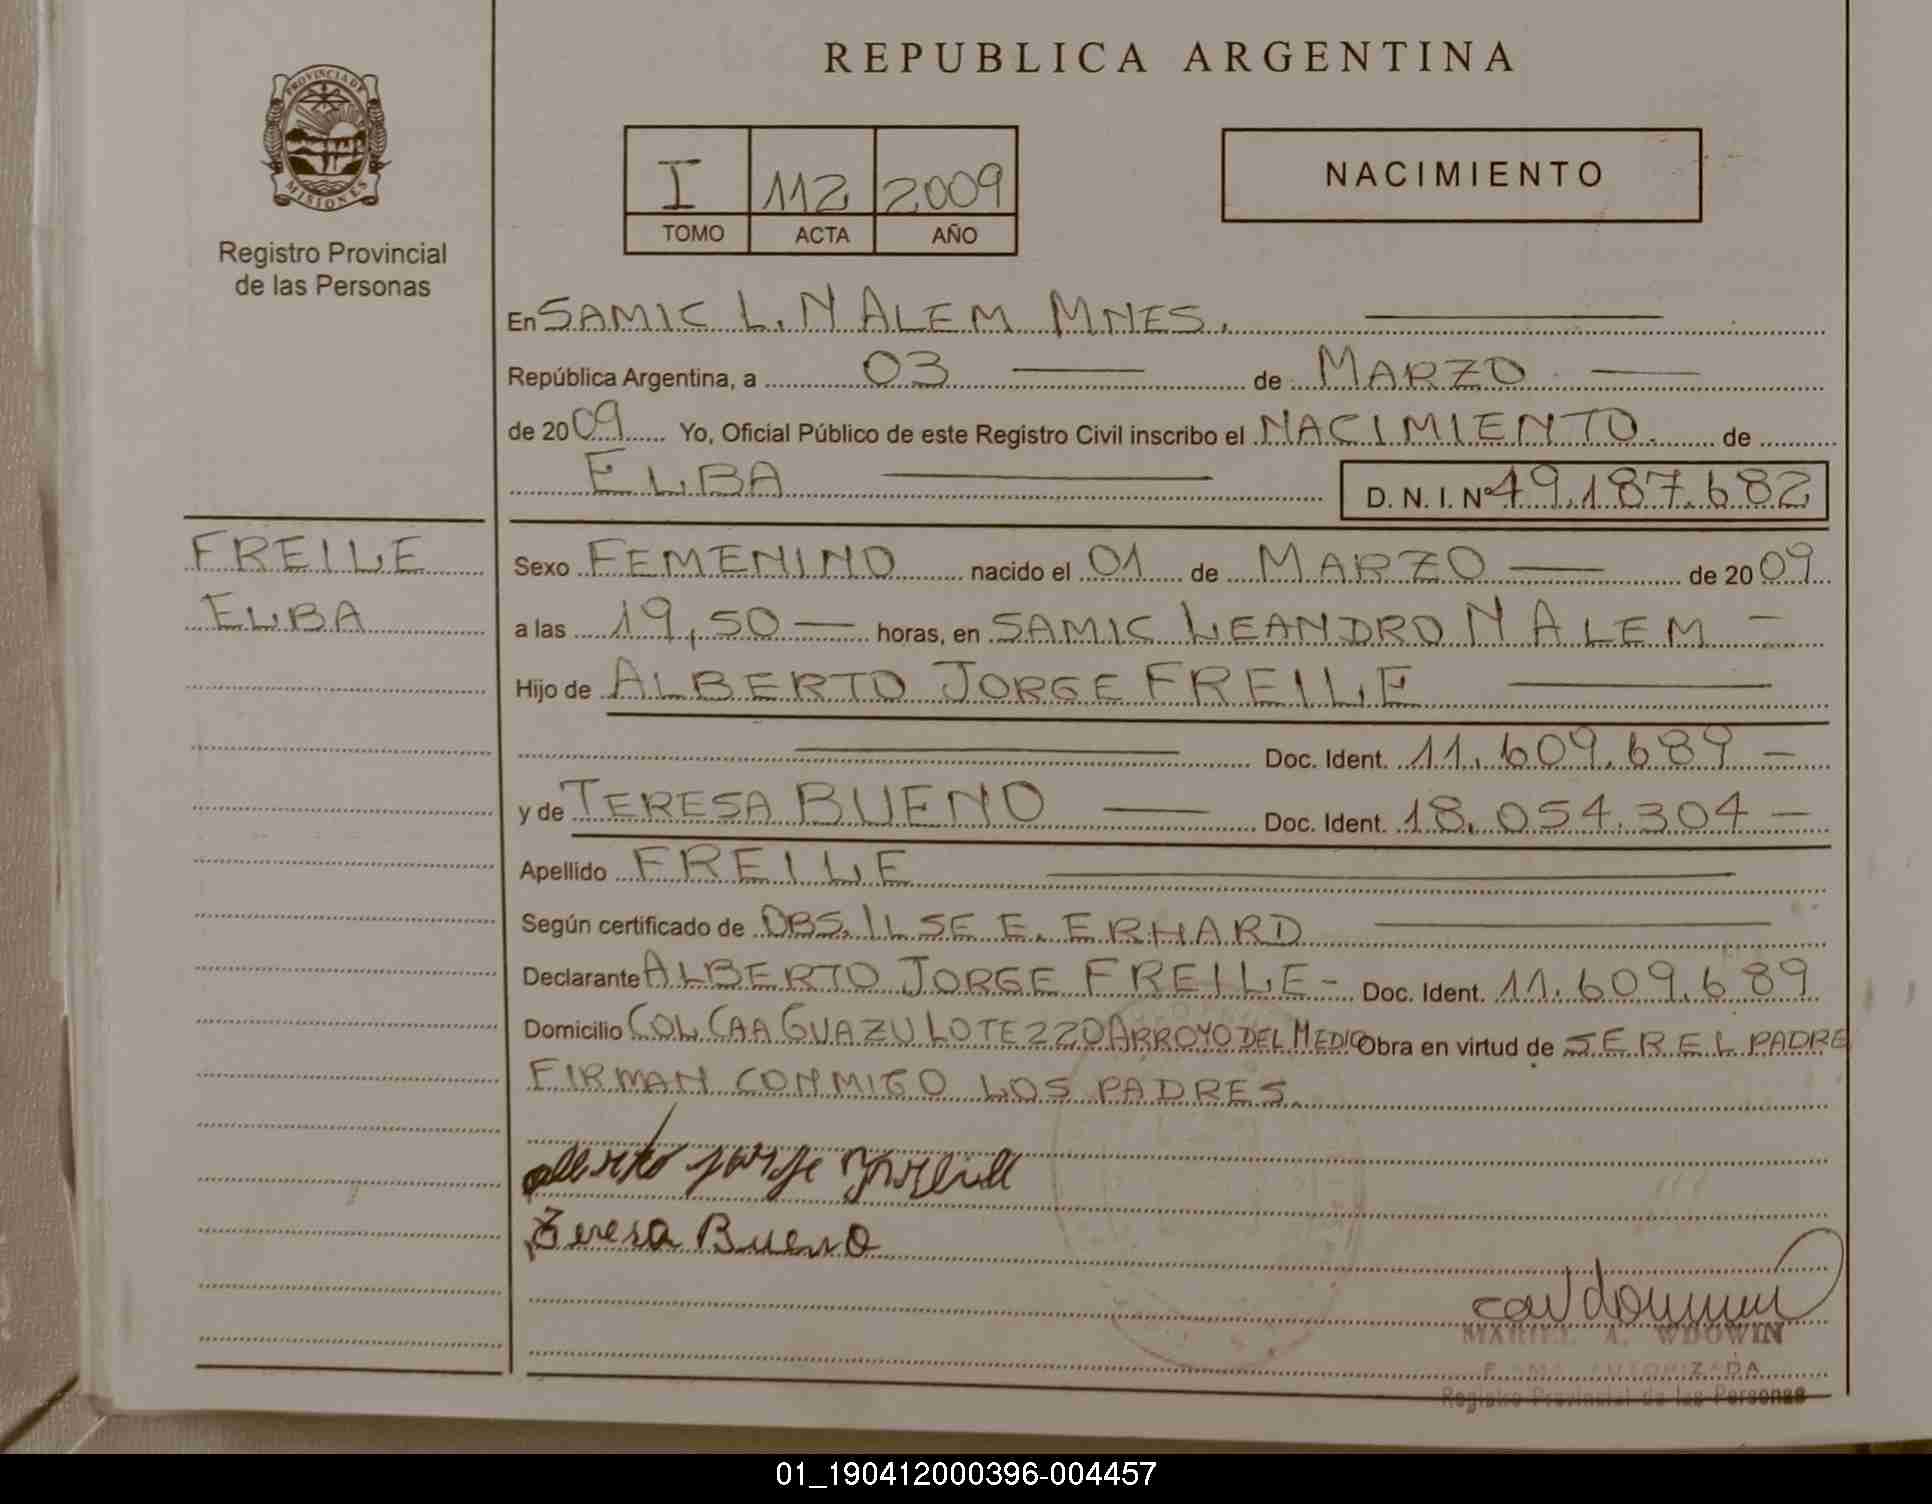 PROVINCIA DE
MISIONES
Registro Provincial
de las Personas
REPUBLICA ARGENTINA
I 112 2009
TOMO ACTA AÑO
NACIMIENTO
En SAMIC L. N ALEM MNES.
República Argentina, a 03 de MARZO
de 2009 Yo, Oficial Público de este Registro Civil inscribo el NACIMIENTO. de
ELBA D. N. I. Nº 49.187.682
FREILE
ELBA
Sexo FEMENINO nacido el 01 de MARZO de 2009
a las 19,50 horas, en SAMIC LEANDRO N ALEM
Hijo de ALBERTO JORGE FREILE
Doc. Ident. 11.609.689
y de TERESA BUENO Doc. Ident. 18.054.304
Apellido FREILE
Según certificado de OBS. ILSE E. ERHARD
Declarante ALBERTO JORGE FREILE - Doc. Ident. 11.609.689
Domicilio COL CAA GUAZU LOTE 220 ARROYO DEL MEDIO Obra en virtud de SER EL PADRE
FIRMAN CONMIGO LOS PADRES.
alberto jorge
Teresa Bueno
MARIEL A. WDOWIN
FIRMA AUTORIZADA
Registro Provincial de las Personas
01_190412000396-004457